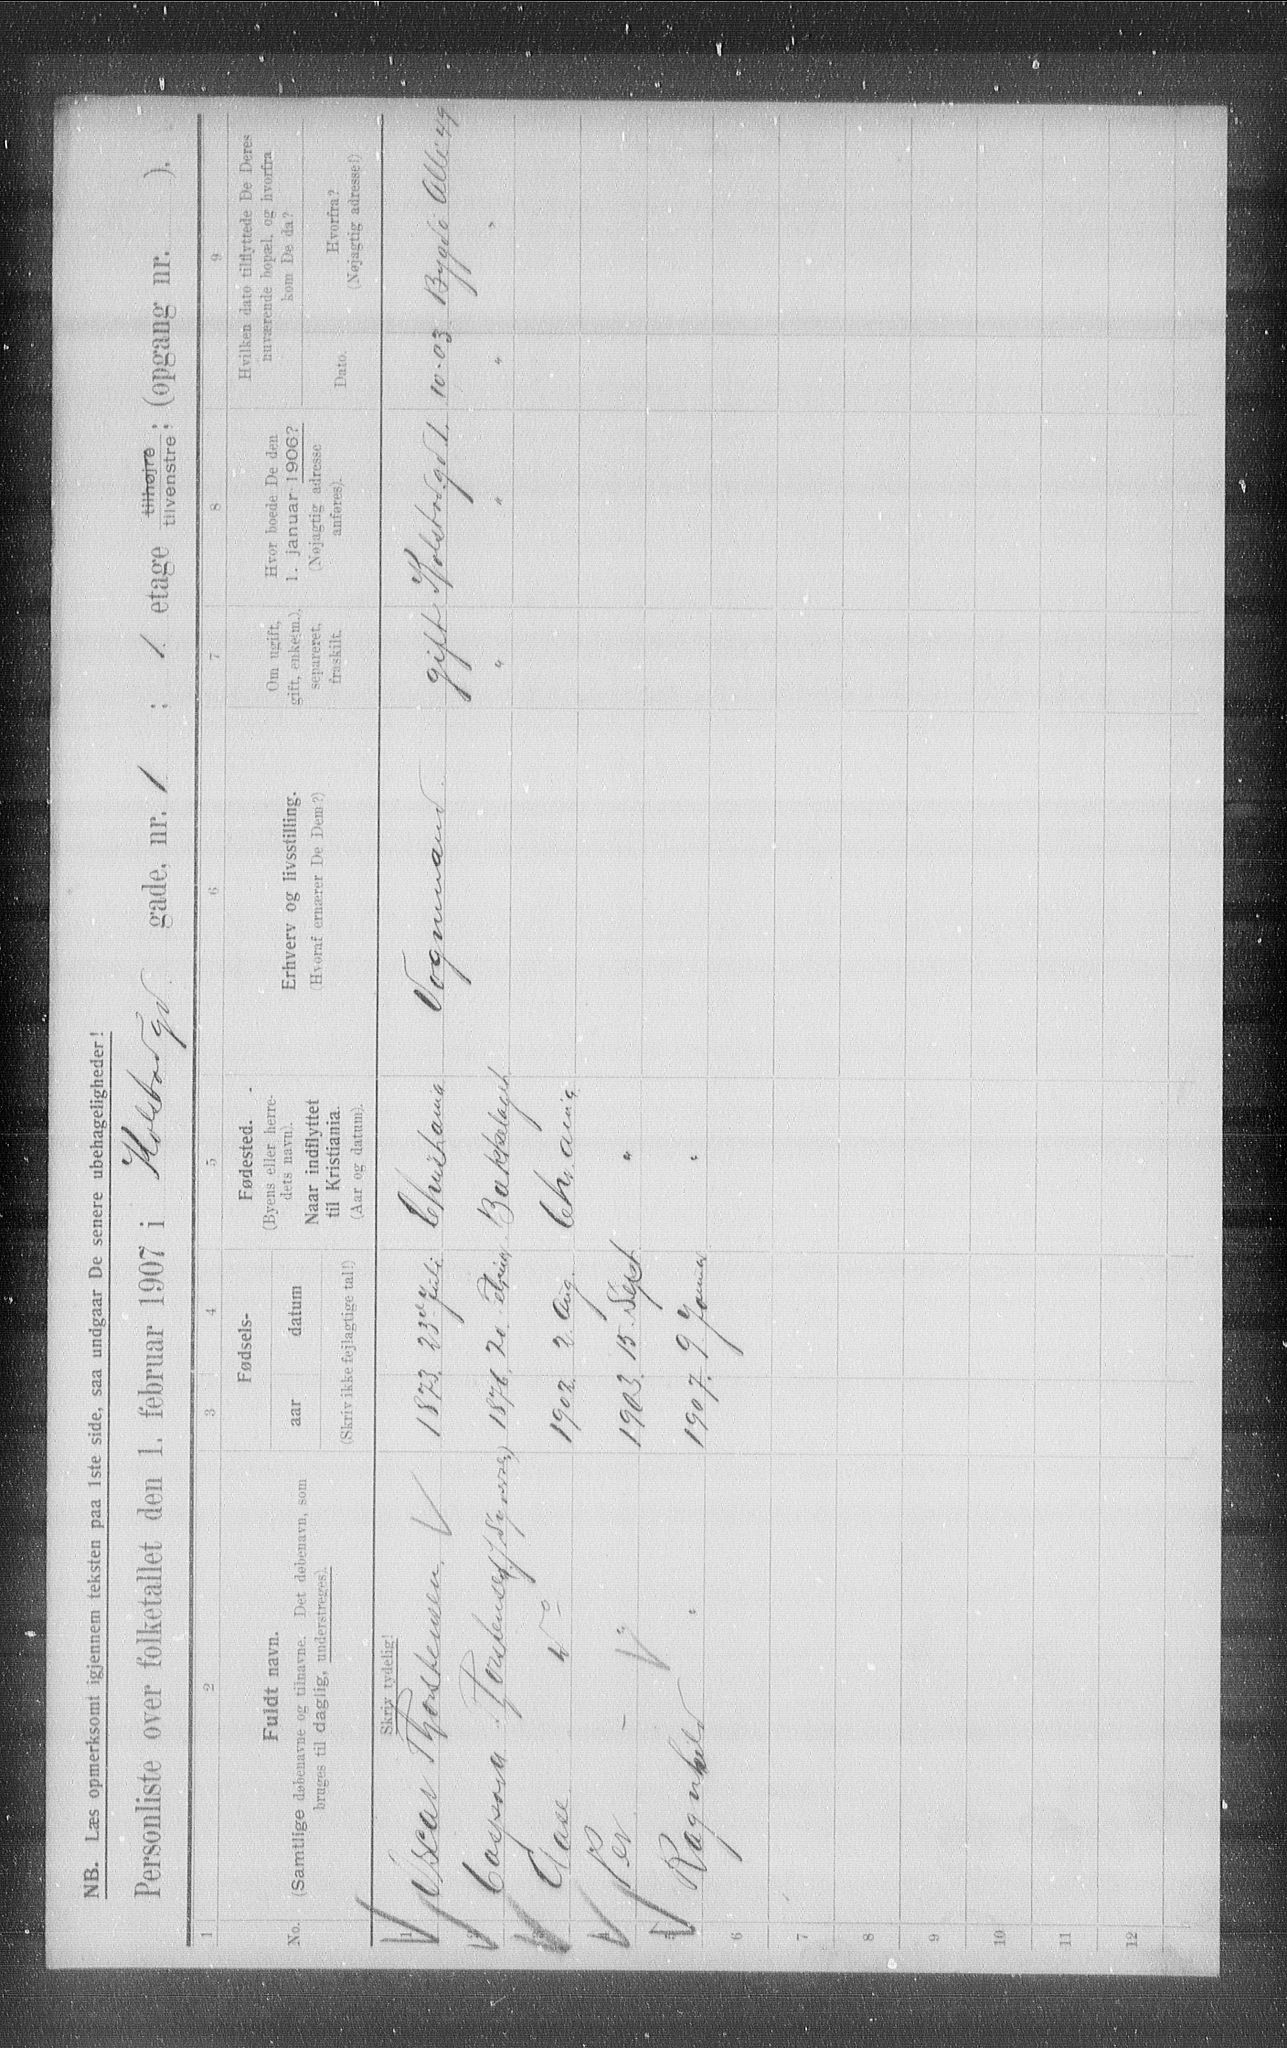 NB. Læs opmerksomt igjennem teksten paa 1ste side, saa undgaar De senere ubehageligheder!
Personliste over folketallet den 1. februar 1907 i Holstesgd. gade, nr. 1 ; 1. etage tilhøjre tilvenstre; (opgang nr. ).
1 2 3 4 5 6 7 8 9
No.
Fuldt navn.
(Samtlige døbenavne og tilnavne. Det døbenavn, som
bruges til daglig, understreges).
Fødsels-
aar datum
(Skriv ikke fejlagtige tal!)
Fødested.
(Byens eller herre-
dets navn).
Naar indflyttet
til Kristiania.
(Aar og datum).
Erhverv og livsstilling.
(Hvoraf ernærer De Dem?)
Om ugift,
gift, enke(m.),
separeret,
fraskilt.
Hvor boede De den
1. januar 1906?
(Nøjagtig adresse
anføres).
Hvilken dato tilflyttede De Deres
nuværende bopæl, og hvorfra
kom De da?
Dato.
Hvorfra?
(Nøjagtig adresse!)
Skriv tydelig!
1 Oscar Thorstensen. 1873. 23 juli Christiania Vognmand. gift 1. 10-03. Bygdø Alle 49
2 Caspara Torstensen 1876. 20. Bakkelaget " " " "
3 Aase Do 1902. 2 Aug. Chr.ania
4 Per - " 1903. 15. Sept "
5 Ragnhild " 1907. 9 Januar "
6
7
8
9
10
11
12